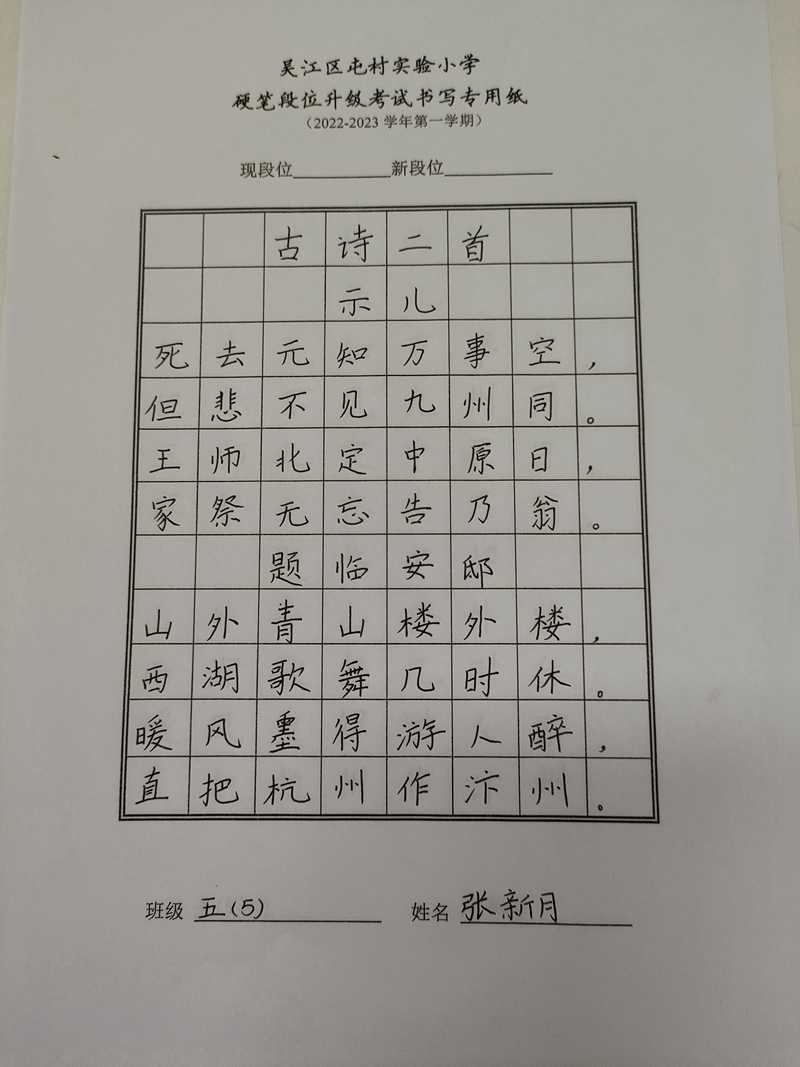 吴江区屯村实验小学
硬笔段位升级考试书写专用纸
（2022-2023 学年第一学期）
现段位__________新段位__________
古诗二首
示儿
死去元知万事空，
但悲不见九州同。
王师北定中原日，
家祭无忘告乃翁。
题临安邸
山外青山楼外楼，
西湖歌舞几时休。
暖风墨得游人醉，
直把杭州作汴州。
班级 五(5) 姓名 张新月